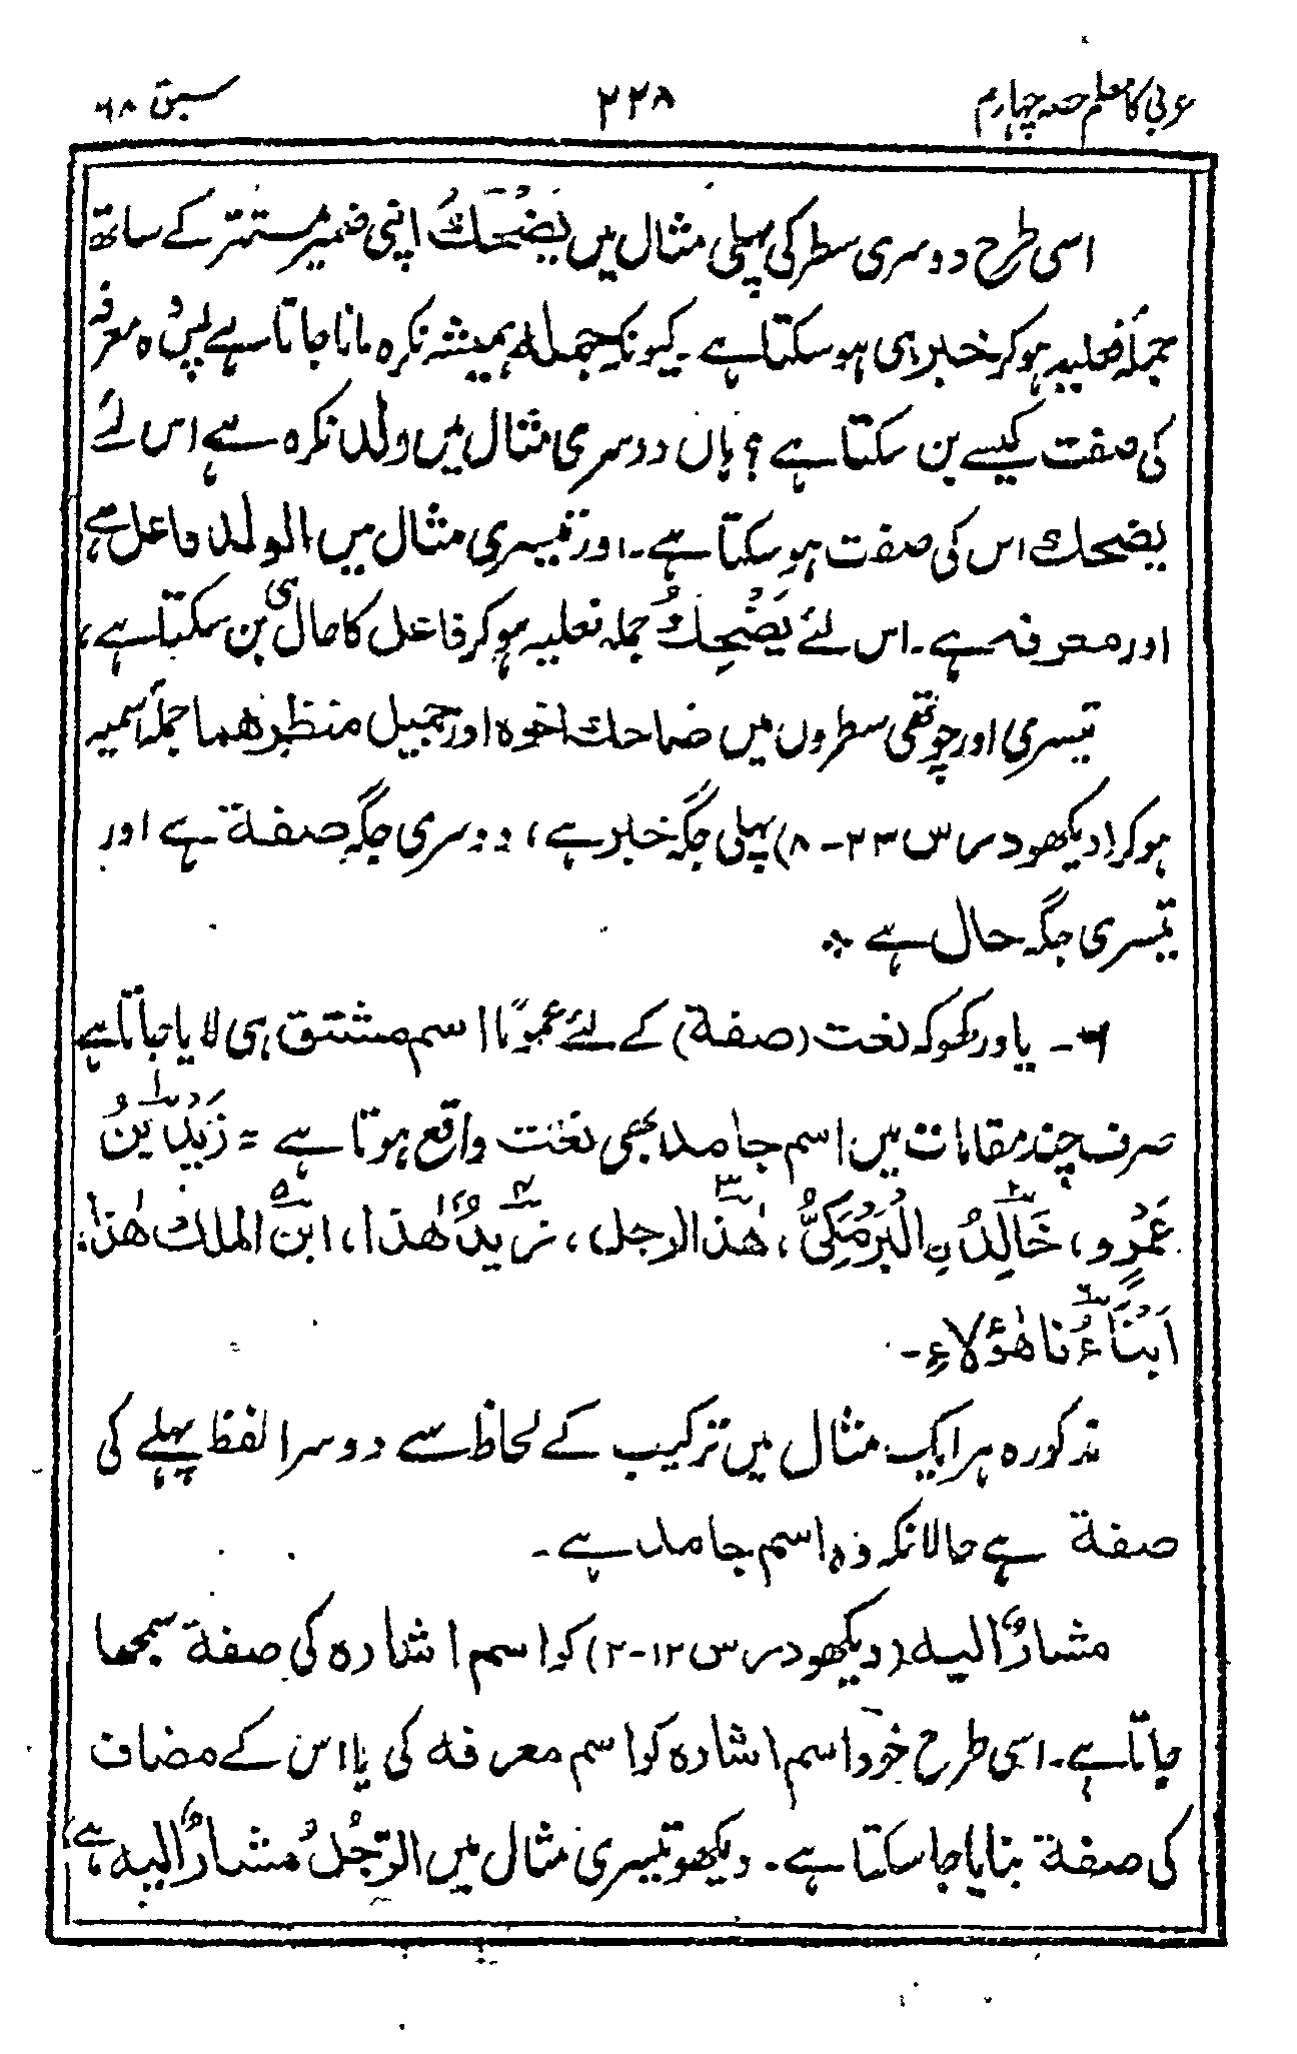 عربی کا معلم حصہ چہارم ۲۲۸ سبق ۶۸
اسی طرح دوسری سطر کی پہلی مثال میں یَضْحَكُ اپنی ضمیر مستتر کے ساتھ
جملۂ فعلیہ ہو کر خبر ہی ہو سکتا ہے۔ کیونکہ جملہ ہمیشہ نکرہ مانا جاتا ہے پس وہ معرفہ
کی صفت کیسے بن سکتا ہے؟ ہاں دوسری مثال میں ولد نکرہ ہے اس لئے
یضحك اس کی صفت ہو سکتا ہے۔ اور تیسری مثال میں الولد فاعل ہے
اور معرفہ ہے۔ اس لئے یَضْحِكُ جملہ فعلیہ ہو کر فاعل کا حال ہی بن سکتا ہے،
تیسری اور چوتھی سطروں میں ضاحك اخوہ اور جمیل منظرھما جملۂ اسمیہ
ہو کر (دیکھو درس ۲۳-۸) پہلی جگہ خبر ہے، دوسری جگہ صفة ہے اور
تیسری جگہ حال ہے ؞
۶۔ یاد رکھو کہ نعت (صفة) کے لئے عموماً اسم مشتق ہی لایا جاتا ہے
صرف چند مقامات میں اسم جامد بھی نعت واقع ہوتا ہے = زَیْدُ بْنُ ۱
عَمْرٍو، خَالِدُ نِ الْبَرْمَكِيُّ ۲، ھٰذا الرجل ۳، زیدٌ ھٰذا ۴، ابن الملك ھٰذا ۵،
اَبْنَاءُنا ھٰؤلاءِ ۶۔
مذکورہ ہر ایک مثال میں ترکیب کے لحاظ سے دوسرا لفظ پہلے کی
صفة ہے حالانکہ وہ اسم جامد ہے۔
مشارٌ الیہ (دیکھو درس ۱۲-۲) کو اسم اشارہ کی صفة سمجھا
جاتا ہے۔ اسی طرح خود اسم اشارہ کو اسم معرفہ کی یا اس کے مضاف
کی صفة بنایا جا سکتا ہے۔ دیکھو تیسری مثال میں الرَّجُلُ مشارٌ الیہ ہے،